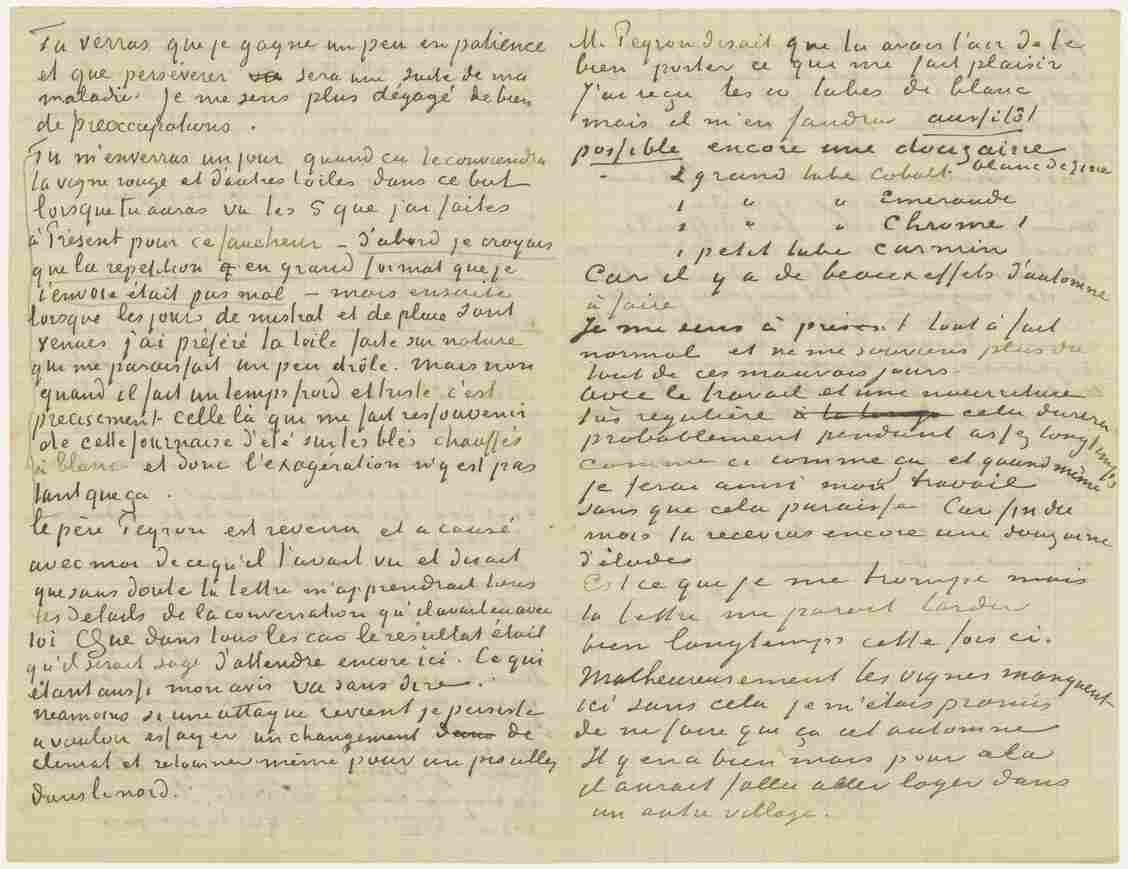 Tu verras que je gagne un peu en patience
et que persévérer va sera une suite de ma
maladie. Je me sens plus dégagé de bien
de préoccupations.
Tu m'enverras un jour quand ça te conviendra
la vigne rouge et d'autres toiles dans ce but
lorsque tu auras vu les 5 que j'ai faites
à Présent pour ce faucheur – D'abord je croyais
que la repetition en grand format que je
t'envoie était pas mal – mais ensuite
lorsque les jours de mistral et de pluie sont
venues j'ai préféré la toile faite sur nature
qui me paraissait un peu drôle. Mais non
quand il fait un temps froid et triste c'est
precisement celle là qui me fait ressouvenir
de cette fournaise d'été sur les blés chauffés
à blanc et donc l'exagération n'y est pas
tant que ça.
le père Peyron est revenu et a causé
avec moi de ce qu'il t'avait vu et disait
que sans doute ta lettre m'apprendrait tous
les details de la conversation qu'il avait eu avec
toi Que dans tous les cas le résultat était
qu'il serait sage d'attendre encore ici. Ce qui
étant aussi mon avis va sans dire.
neamoins si une attaque revient je persiste
a vouloir essayer un changement dans de
climat et retourner même pour un pis aller
dans le nord.
M. Peyron disait que tu avais l'air de te
bien porter ce qui me fait plaisir
J'ai reçu les 10 tubes de blanc
mais il m'en faudra aussitôt
possible encore une douzaine
2 grand tube cobalt blanc de zinc
1 " " Emeraude
2 " " Chrome 1
1 petit tube carmin
Car il y a de beaux effets d'automne
à faire
Je me sens à présent tout à fait
normal et ne me souviens plus du
tout de ces mauvais jours.
avec le travail et une nourriture
très regulière à la longue cela durera
probablement pendant assez longtemps
comme ci comme ça et quand même
je ferai ainsi mon travail
sans que cela paraisse Car fin du
mois tu recevras encore une douzaine
d'études
Est ce que je me trompe mais
ta lettre me parait tarder
bien longtemps cette fois ci.
Malheureusement les vignes manquent
ici sans cela je m'étais promis
de ne faire que ça cet automne
Il y en a bien mais pour cela
il aurait fallu aller loger dans
un autre village.